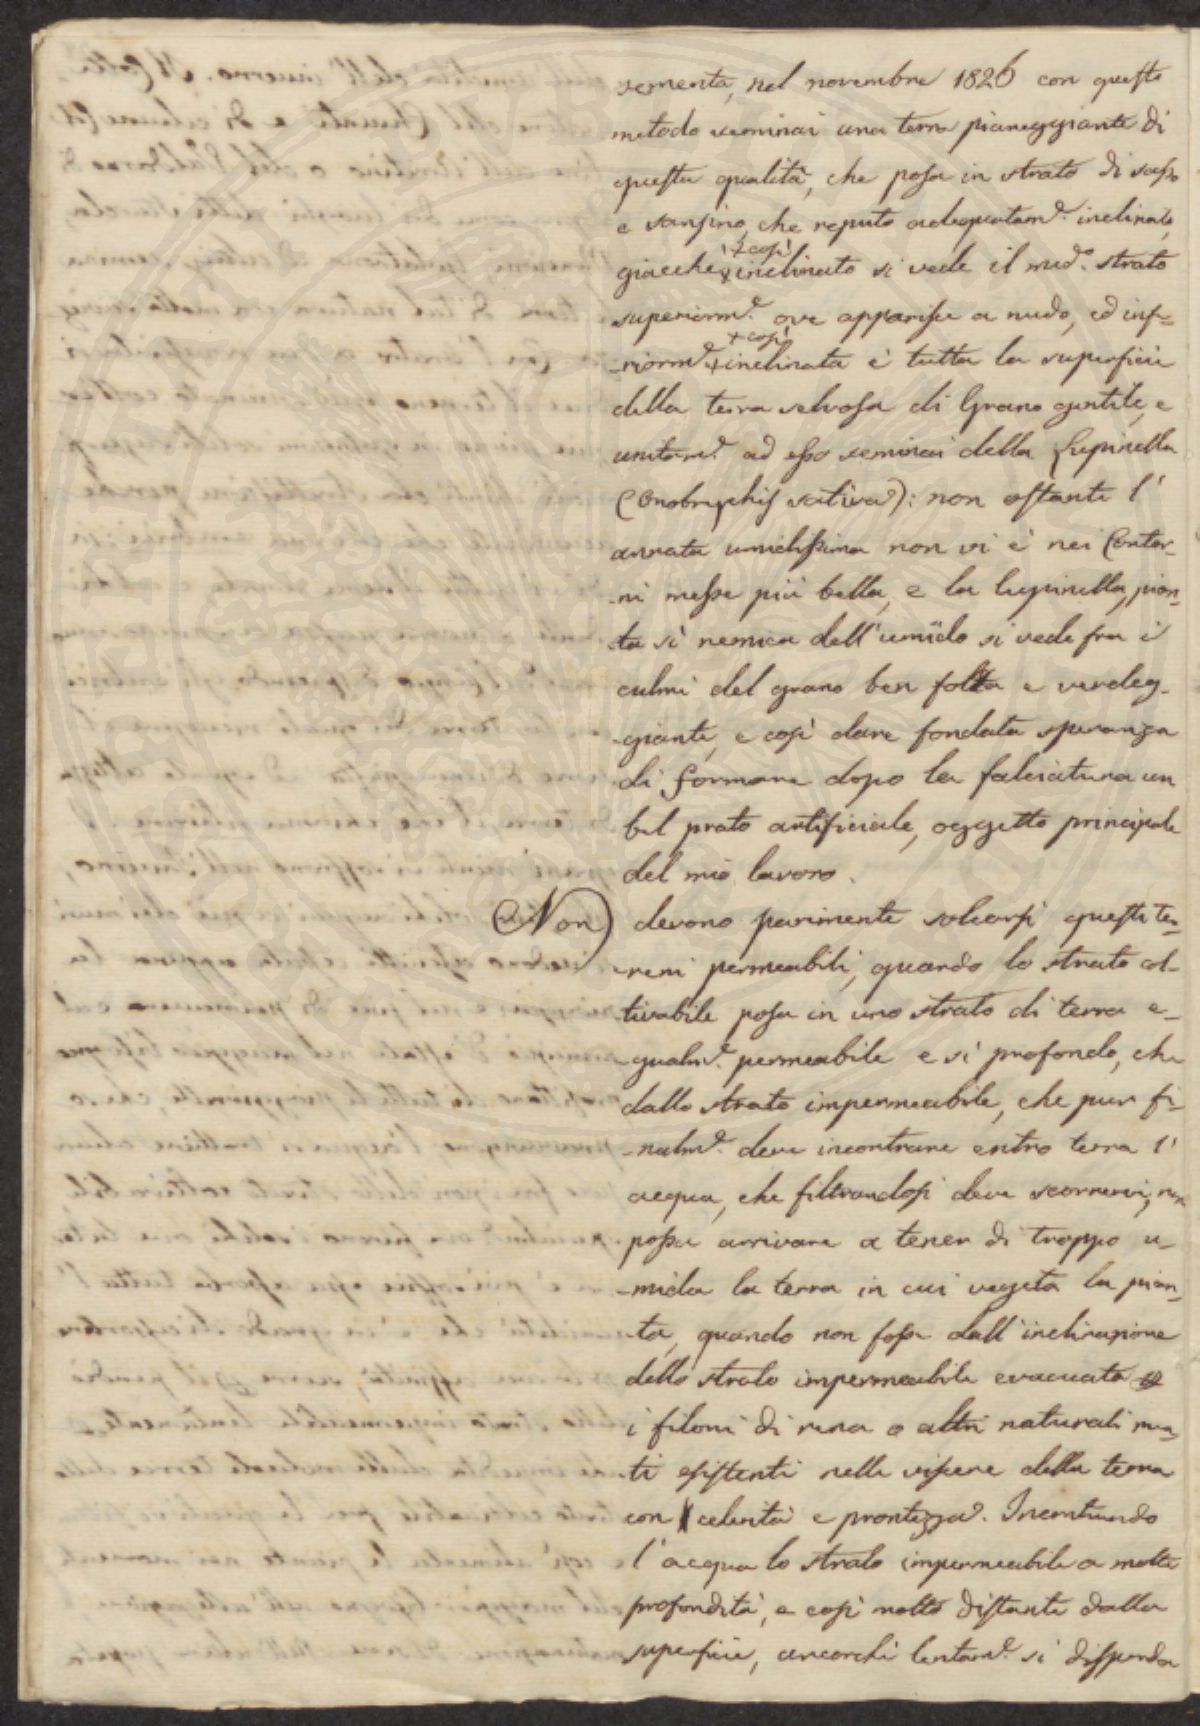 sementa, nel novembre 1826 con questo
metodo seminai una terra pianeggiante di
questa qualità, che posa in strato di sasso
e sansino, che reputo adequatam.e inclinato,
+ così
giacche + inclinato si vede il med.o strato
superiorm.e ove apparisce a nudo, ed infe=
+ così
-riorm.e + inclinata è tutta la superficie
della terra selvosa di Grano gentile, e
unitam.e ad esso seminai della Lupinella
(Onobrychis sativa): non ostante l'
annata umidissima non vi è nei Contor-
-ni messe più bella, e la lupinella, pian-
-ta sì nemica dell'umido si vede fra i
culmi del grano ben folta e verdeg-
-giante, e così dare fondata speranza
di formare dopo la falciatura un
bel prato artificiale, oggetto principale
del mio lavoro.
Non) devono parimente solcarsi questi ter-
-reni permeabili, quando lo strato col-
tivabile posa in uno strato di terra e-
-gualm.e permeabile e sì profondo, che
dallo strato impermeabile, che pur fi-
-nalm.e deve incontrare entro terra l'
acqua, che filtrandosi deve scorrervi, non
possa arrivare a tener di troppo u-
-mida la terra in cui vegeta la pian-
-ta, quando non fosse dall'inclinazione
dello strato impermeabile evacuata
i filoni di rena o altri naturali
-ti esistenti nelle viscere della terra
con celerità e prontezza. Incontrando
l'acqua lo strato impermeabile a molta
profondità, e così molto distante dalla
superficie, ancorchè lentam.e si disperda